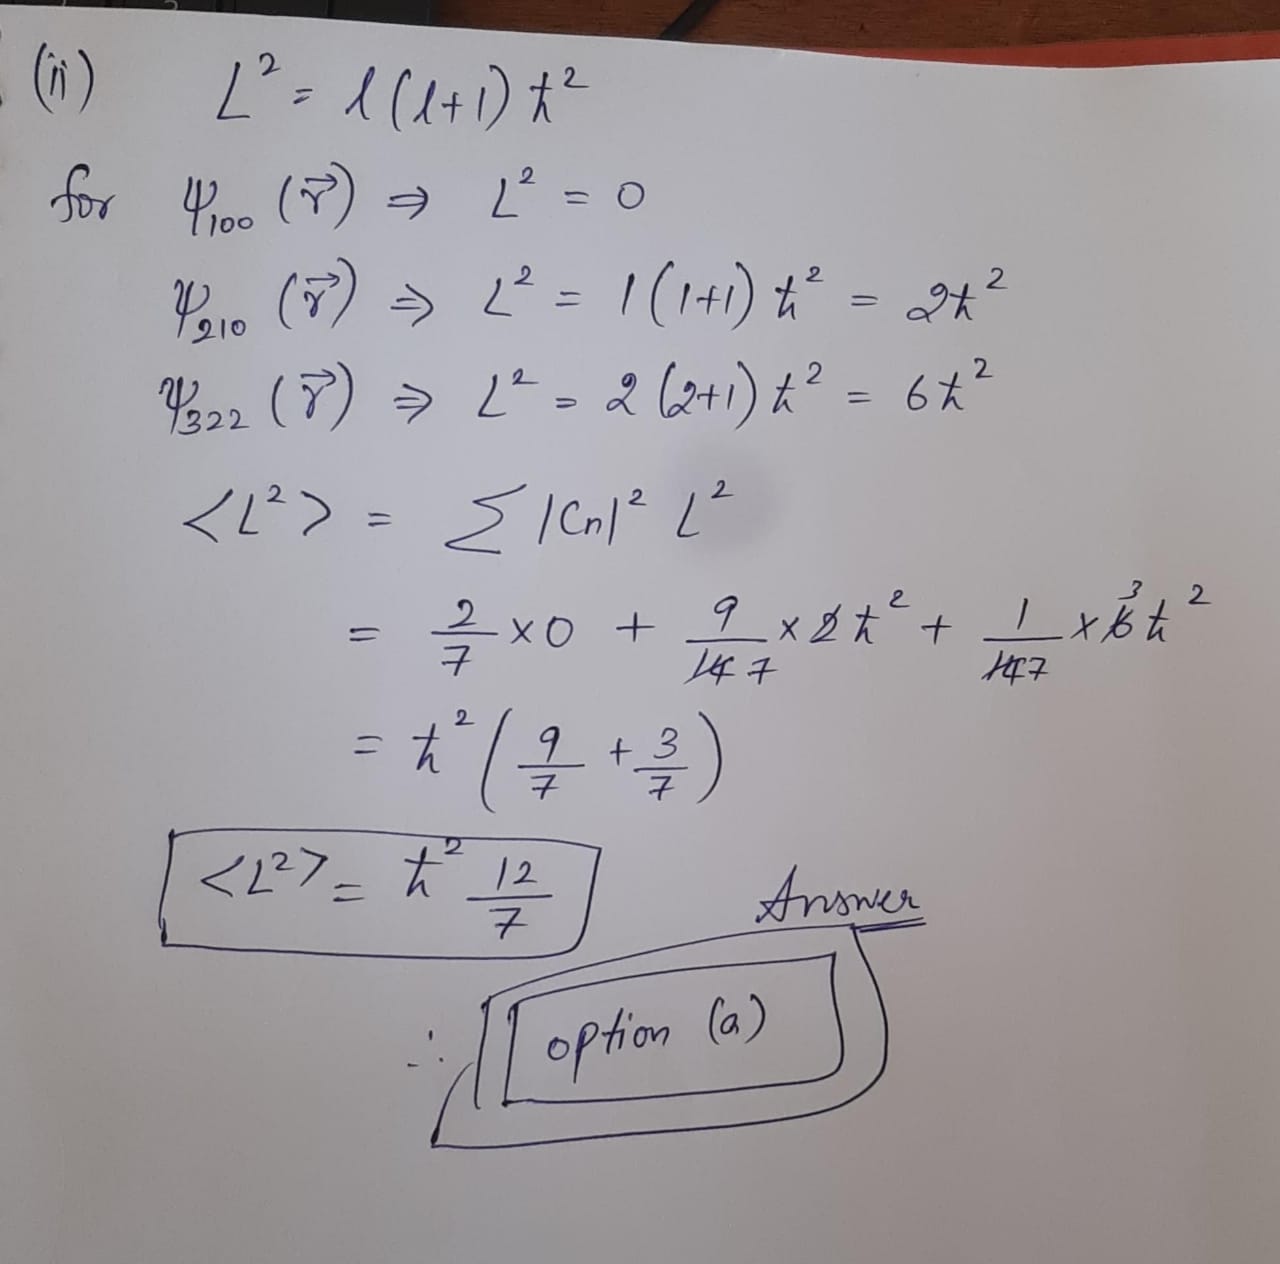 (ii) L² = l(l+1) ħ²
for ψ₁₀₀ (r⃗) ⇒ L² = 0
ψ₂₁₀ (r⃗) ⇒ L² = 1(1+1) ħ² = 2ħ²
ψ₃₂₂ (r⃗) ⇒ L² = 2(2+1) ħ² = 6ħ²
<L²> = Σ |Cn|² L²
= 2/7 × 0 + 9/14 7 × 2ħ² + 1/14 7 × 6 3 ħ²
= ħ² (9/7 + 3/7)
<L²> = ħ² 12/7
Answer
∴ option (a)